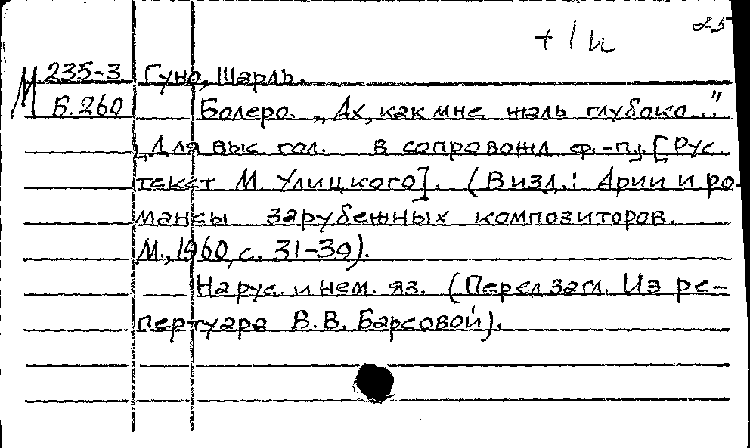 + 1 к 25
М 235-3 Гуно, Шарль.
Б.260 Болеро. „Ах, как мне жаль глубоко..."
„Для выс. гол. в сопровожд. ф.-п. [Рус.
текст М. Улицкого]. (В изд.: Арии и ро-
мансы зарубежных композиторов.
М., 1960, с. 31-39).
На рус. и нем. яз. (Перед загл. Из ре-
пертуара В.В. Барсовой).